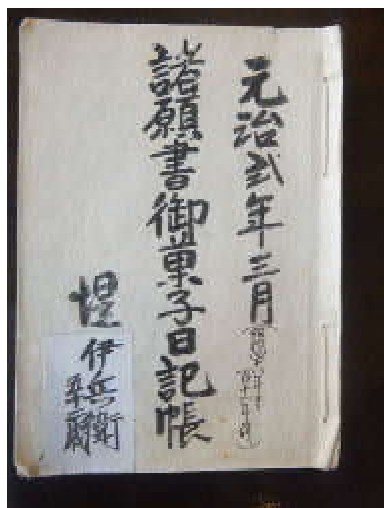 元治弐年三月
諸願書御菓子日記帳
堤
伊兵衛